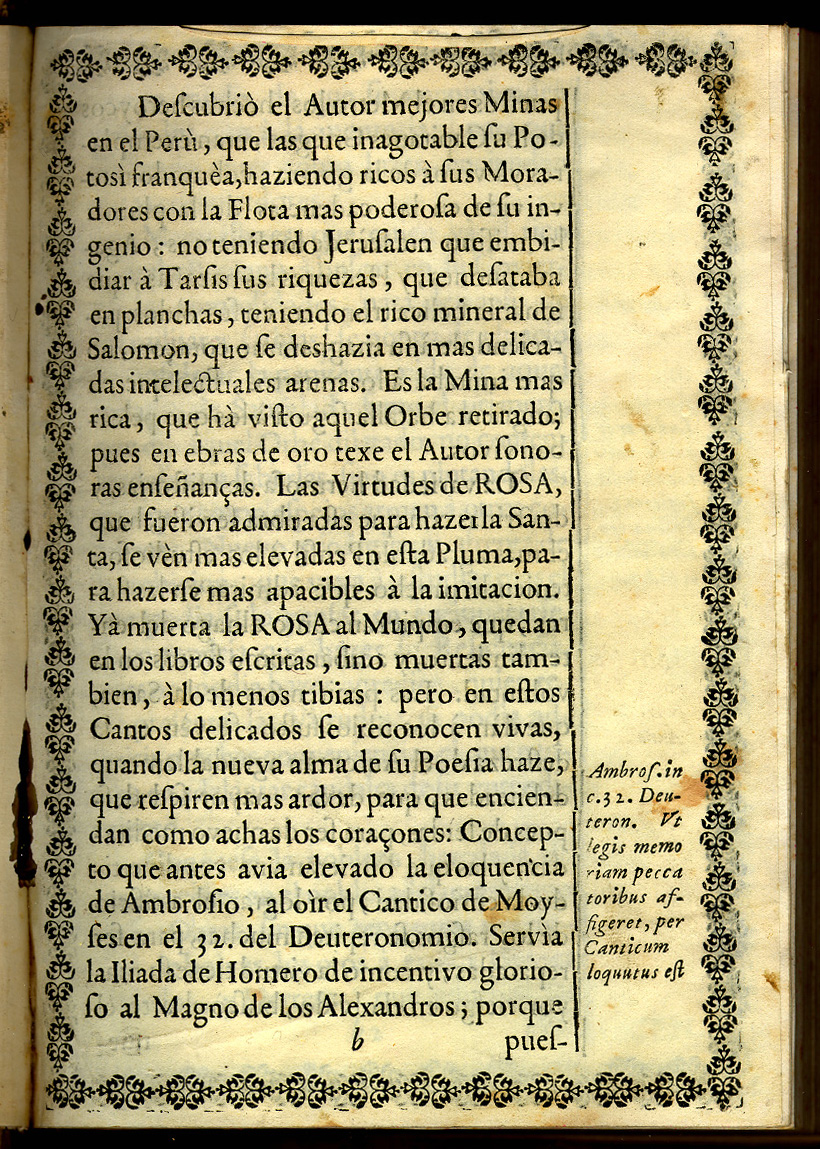 Deſcubriò el Autor mejores Minas
en el Perù, que las que inagotable ſu Po-
tosì franquèa, haziendo ricos à ſus Mora-
dores con la Flota mas poderoſa de ſu in-
genio: no teniendo Jeruſalen que embi-
diar à Tarſis ſus riquezas, que deſataba
en planchas, teniendo el rico mineral de
Salomon, que ſe deshazia en mas delica-
das intelectuales arenas. Es la Mina mas
rica, que hà viſto aquel Orbe retirado;
pues en ebras de oro texe el Autor ſono-
ras enſeñanças. Las Virtudes de ROSA,
que fueron admiradas para hazerla San-
ta, ſe vèn mas elevadas en eſta Pluma, pa-
ra hazerſe mas apacibles à la imitacion.
Yà muerta la ROSA al Mundo, quedan
en los libros eſcritas, ſino muertas tam-
bien, à lo menos tibias: pero en eſtos
Cantos delicados ſe reconocen vivas,
quando la nueva alma de ſu Poeſia haze,
que reſpiren mas ardor, para que encien-
dan como achas los coraçones: Concep-
to que antes avia elevado la eloquencia
de Ambroſio, al oìr el Cantico de Moy-
ſes en el 32. del Deuteronomio. Servia
la Iliada de Homero de incentivo glorio-
ſo al Magno de los Alexandros; porque
b pueſ-
Ambroſ. in
c. 32. Deu-
teron. Vt
legis memo
riam pecca
toribus af-
figeret, per
Canticum
loquutus eſt